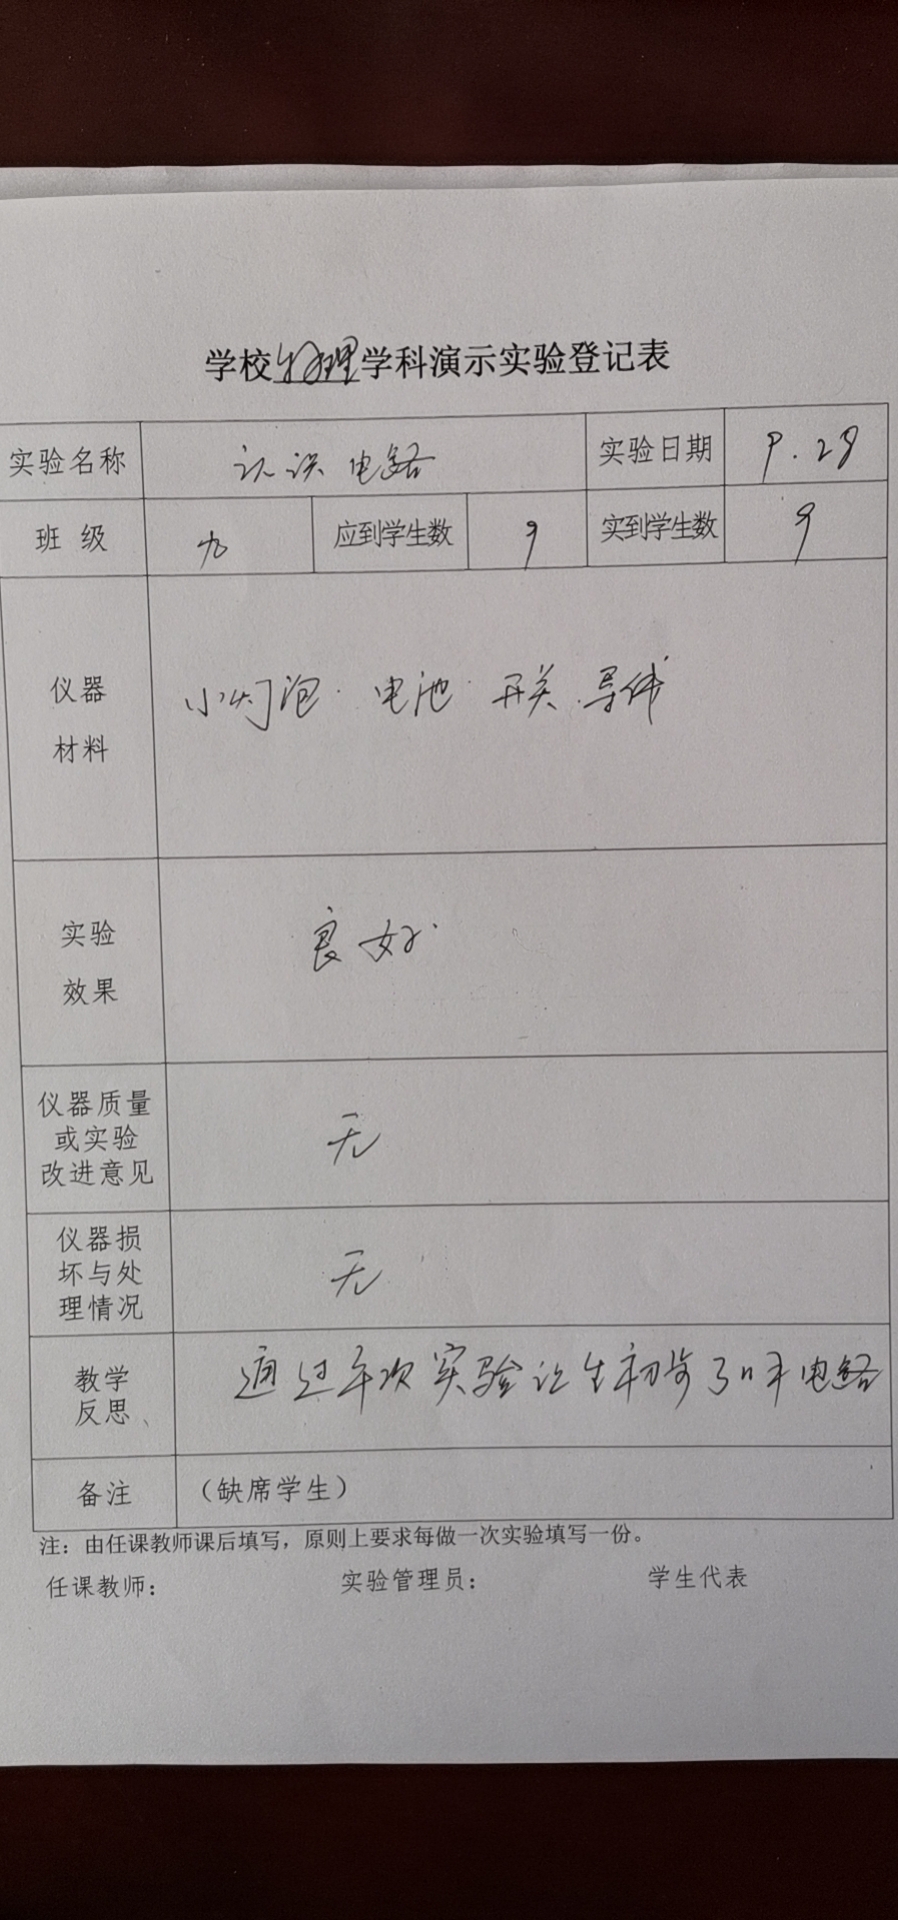 学校物理学科演示实验登记表
实验名称 认识电路 实验日期 9.28
班 级 九 应到学生数 9 实到学生数 9
仪器
材料
小灯泡. 电池. 开关.导线
实验
效果
良好.
仪器质量
或实验
改进意见
无
仪器损
坏与处
理情况
无
教学
反思、
通过本次实验让学生初步了解电路
备注 (缺席学生)
注：由任课教师课后填写，原则上要求每做一次实验填写一份。
任课教师： 实验管理员： 学生代表